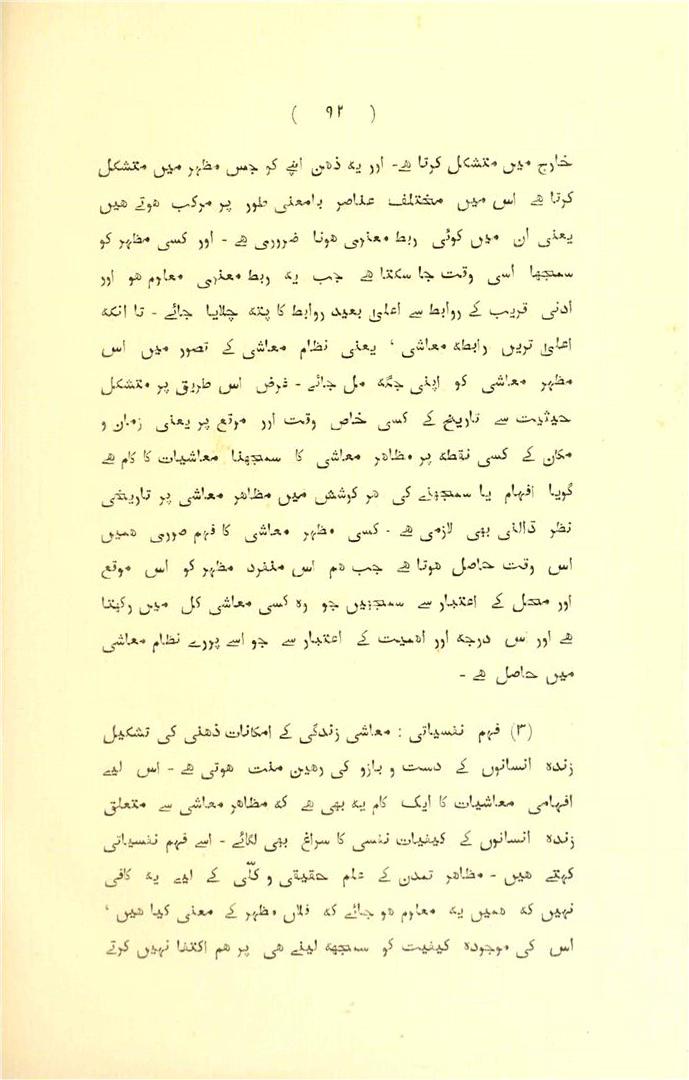 ( ۹۲ )
خارج میں متشکل کرتا ہے- اور یہ ذہن اپنے کو جس مظہر میں متشکل
کرتا ہے اس میں مختلف عناصر بامعنی طور پر مرکب ہوتے ہیں
یعنی ان میں کوئی ربط معنوی ہونا ضروری ہے - اور کسی مظہر کو
سمجھا اسی وقت جا سکتا ہے جب یہ ربط معنوی معلوم ہو اور
ادنی قریب کے روابط سے اعلیٰ بعید روابط کا پتہ چلایا جائے - تا آنکہ
اعلیٰ تریں رابطہ معاشی ' یعنی نظام معاشی کے تصور میں اس
مظہر معاشی کو اپنی جگہ مل جائے - غرض اس طریق پر متشکل
حیثیت سے تاریخ کے کسی خاص وقت اور موقع پر یعنی زمان و
مکان کے کسی نقطہ پر مظاہر معاشی کا سمجھنا معاشیات کا کام ہے
گویا افہام یا سمجھنے کی ہر کوشش میں مظاہر معاشی پر تاریخی
نظر ڈالنی بھی لازمی ہے - کسی مظہر معاشی کا فہم صوری ہمیں
اس وقت حاصل ہوتا ہے جب ہم اس منفرد مظہر کو اس موقع
اور محل کے اعتبار سے سمجھیں جو وہ کسی معاشی کل میں رکھتا
ہے اور اس درجہ اور اہمیت کے اعتبار سے جو اسے پورے نظام معاشی
میں حاصل ہے -
(۳) فہم نفسیاتی : معاشی زندگی کے امکانات ذہنی کی تشکیل
زندہ انسانوں کے دست و بازو کی رہین منت ہوتی ہے - اس لیے
افہامی معاشیات کا ایک کام یہ بھی ہے کہ مظاہر معاشی سے متعلق
زندہ انسانوں کے کیفیات نفسی کا سراغ بھی لگائے - اسے فہم نفسیاتی
کہتے ہیں - مظاہر تمدن کے علم حقیقی و کلّی کے لیے یہ کافی
نہیں کہ ہمیں یہ معلوم ہو جائے کہ فلاں مظہر کے معنی کیا ہیں '
اس کی موجودہ کیفیت کو سمجھ لینے ہی پر ہم اکتفا نہیں کرتے